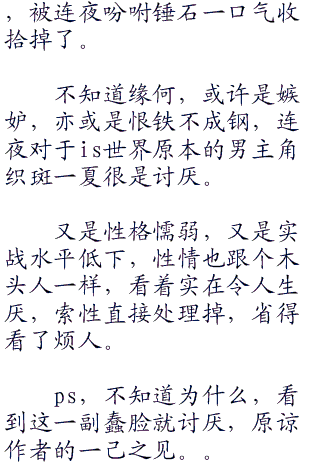 ，被连夜吩咐锤石一口气收
拾掉了。
不知道缘何，或许是嫉
妒，亦或是恨铁不成钢，连
夜对于is世界原本的男主角
织斑一夏很是讨厌。
又是性格懦弱，又是实
战水平低下，性情也跟个木
头人一样，看着实在令人生
厌，索性直接处理掉，省得
看了烦人。
ps，不知道为什么，看
到这一副蠢脸就讨厌，原谅
作者的一己之见。。